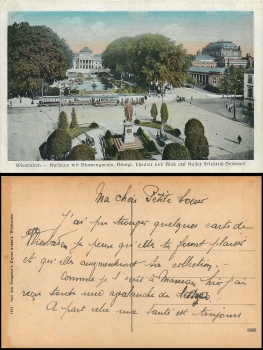 Wiesbaden — Kurhaus mit Blumengarten, Königl. Theater und Blick auf Kaiser Friedrich-Denkmal
Ma chère Petite Soeur
J'ai pu trouver quelques cartes de
Wiesbaden je pense qu'elles te feront plaisir
et qu'elles augmenteront ta collection.
Comme je l'ai dit à Maman hier j'ai
reçu toute une avalanche de
A part cela ma santé est toujours